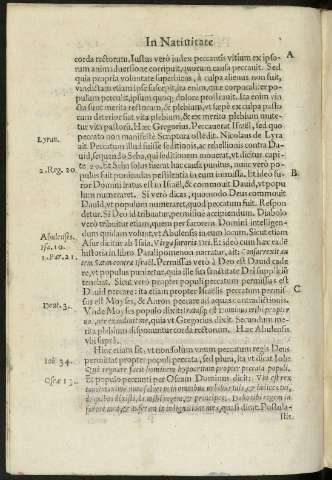 In Natiuitate
A
corda rectorum. Iustus verò iudex peccantis vitium ex ipso-
rum animiaduersione corripuit, quorum causa peccauit. Sed
quia propria voluntate superbiens, à culpa alienus non fuit,
vindictam etiam ipse suscepit, ita enim, qui corporaliter po-
pulum percutit, ipsum quoq; dolore prostrauit. Ita enim vin-
cta sunt merita rectorum, & plebium, vt sæpè ex culpa pasto-
rum deterior fiat vita plebium, & ex merito plebium mute-
tur vita pastorū. Hæc Gregorius. Peccauerat Israël, sed quo
Lyran.
peccato non manifestè Scriptura ostēdit. Nicolaus de Lyra
ait Peccatum illud fuisse seditionis, ac rebellionis contra Da-
uid, sequendo Seba, qui seditionem mouerat, vt dicitur capi-
2. Reg. 20.
te 20. ibi Seba solus fuerat hac causa punitus, nunc verò po-
B
pulus fuit puniendus pestilentia in eum immissa. Et ideò fu-
ror Domini iratus est in Israël, & commouit Dauid, vt popu
lum numeraret. Si verò dicas, quomodo Deus commouit
Dauid, vt populum numeraret, quod peccatum fuit. Respon
detur. Si Deo id tribuatur, permissiuè accipiendum. Diabolo
verò tribuitur etiam, quem per furorem Domini intelligen-
Abulensis.
dum quidam volunt, vt Abulensis in eum locum. Sicut etiam
Isa. 10.
Asur dicitur ab Isaia, Virga furoris Dei. Et ideò cum hæc eadē
1. Par. 21.
historia in libro Paralipomenon narratur, ait: Consurrexit au
tem Satan contra Israël. Permissus verò à Deo est Dauid cade
re, vt populus puniretur, quia ille sua sanctitate Dei supplicium
tenebat. Sicut verò propter populi peccatum permissus est
C
Dauid peccare: ita etiam propter Israëlis peccatum permis-
sus est Moyses, & Aaron peccare ad aquas contradictionis.
Deut. 3.
Vnde Moyses populo dixit: iratusq; est Dominus mihi propter
vos, nec exaudiuit me, quia vt Gregorius dixit. Secundum me-
rita plebium disponuntur corda rectorum. Hæc Abulensis
vbi suprà.
Hinc etiam sit, vt non solùm vnum peccatum regis Deus
permittat propter populi peccata, sed plura, sic vt dicat Iob:
Iob 34.
Qui regnare facit hominem hypocritam propter peccata populi.
Oseæ 13.
Et populo peccanti per Oseam Dominus dicit: Vbi est rex
tuus? maximè nunc saluet te in omnibus vrbibus tuis, & iudices tui,
de quibus dixisti, da mihi regem, & principes. Dabo tibi regem in
furore meo, & auferam in indignatione mea, quasi dicat: Postula-
stis.